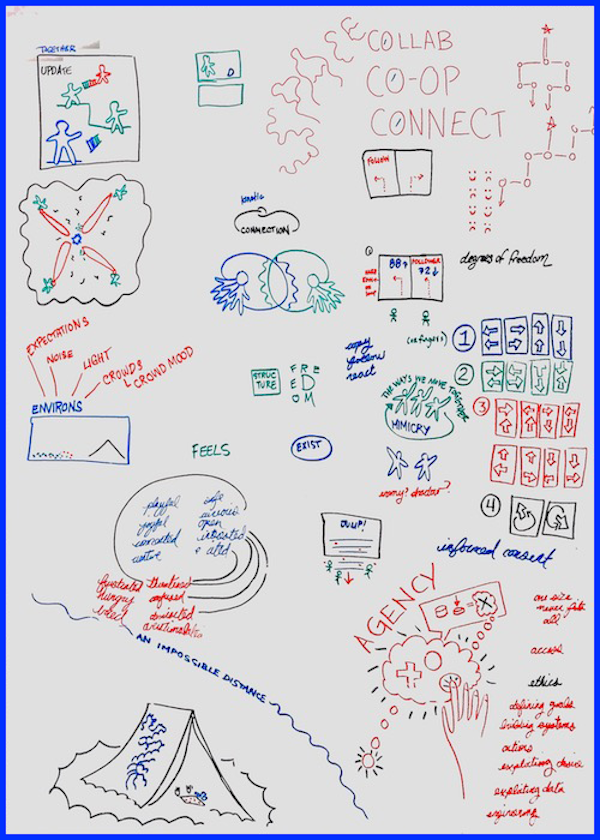 TOGETHER
UPDATE
D
COLLAB
CO-OP
CONNECT
FOLLOW
kinetic
CONNECTION
88↑
FOLLOWER
72↓
degrees of freedom
EXPECTATIONS
NOISE
LIGHT
CROWDS
CROWD MOOD
ENVIRONS
STRUC
TURE
FRE
ED
OM
copy
follow
react
(or fingers)
THE WAYS WE MOVE TOGETHER
MIMICRY
1
2
3
4
FEELS
EXIST
playful
joyful
connected
safe
curious
open
interested
frustrated
hungry
threatened
confused
AN IMPOSSIBLE DISTANCE
informed consent
AGENCY
one size
never fits
all
access
ethics
defining goals
building systems
actions
exploiting desire
exploiting data
engineering